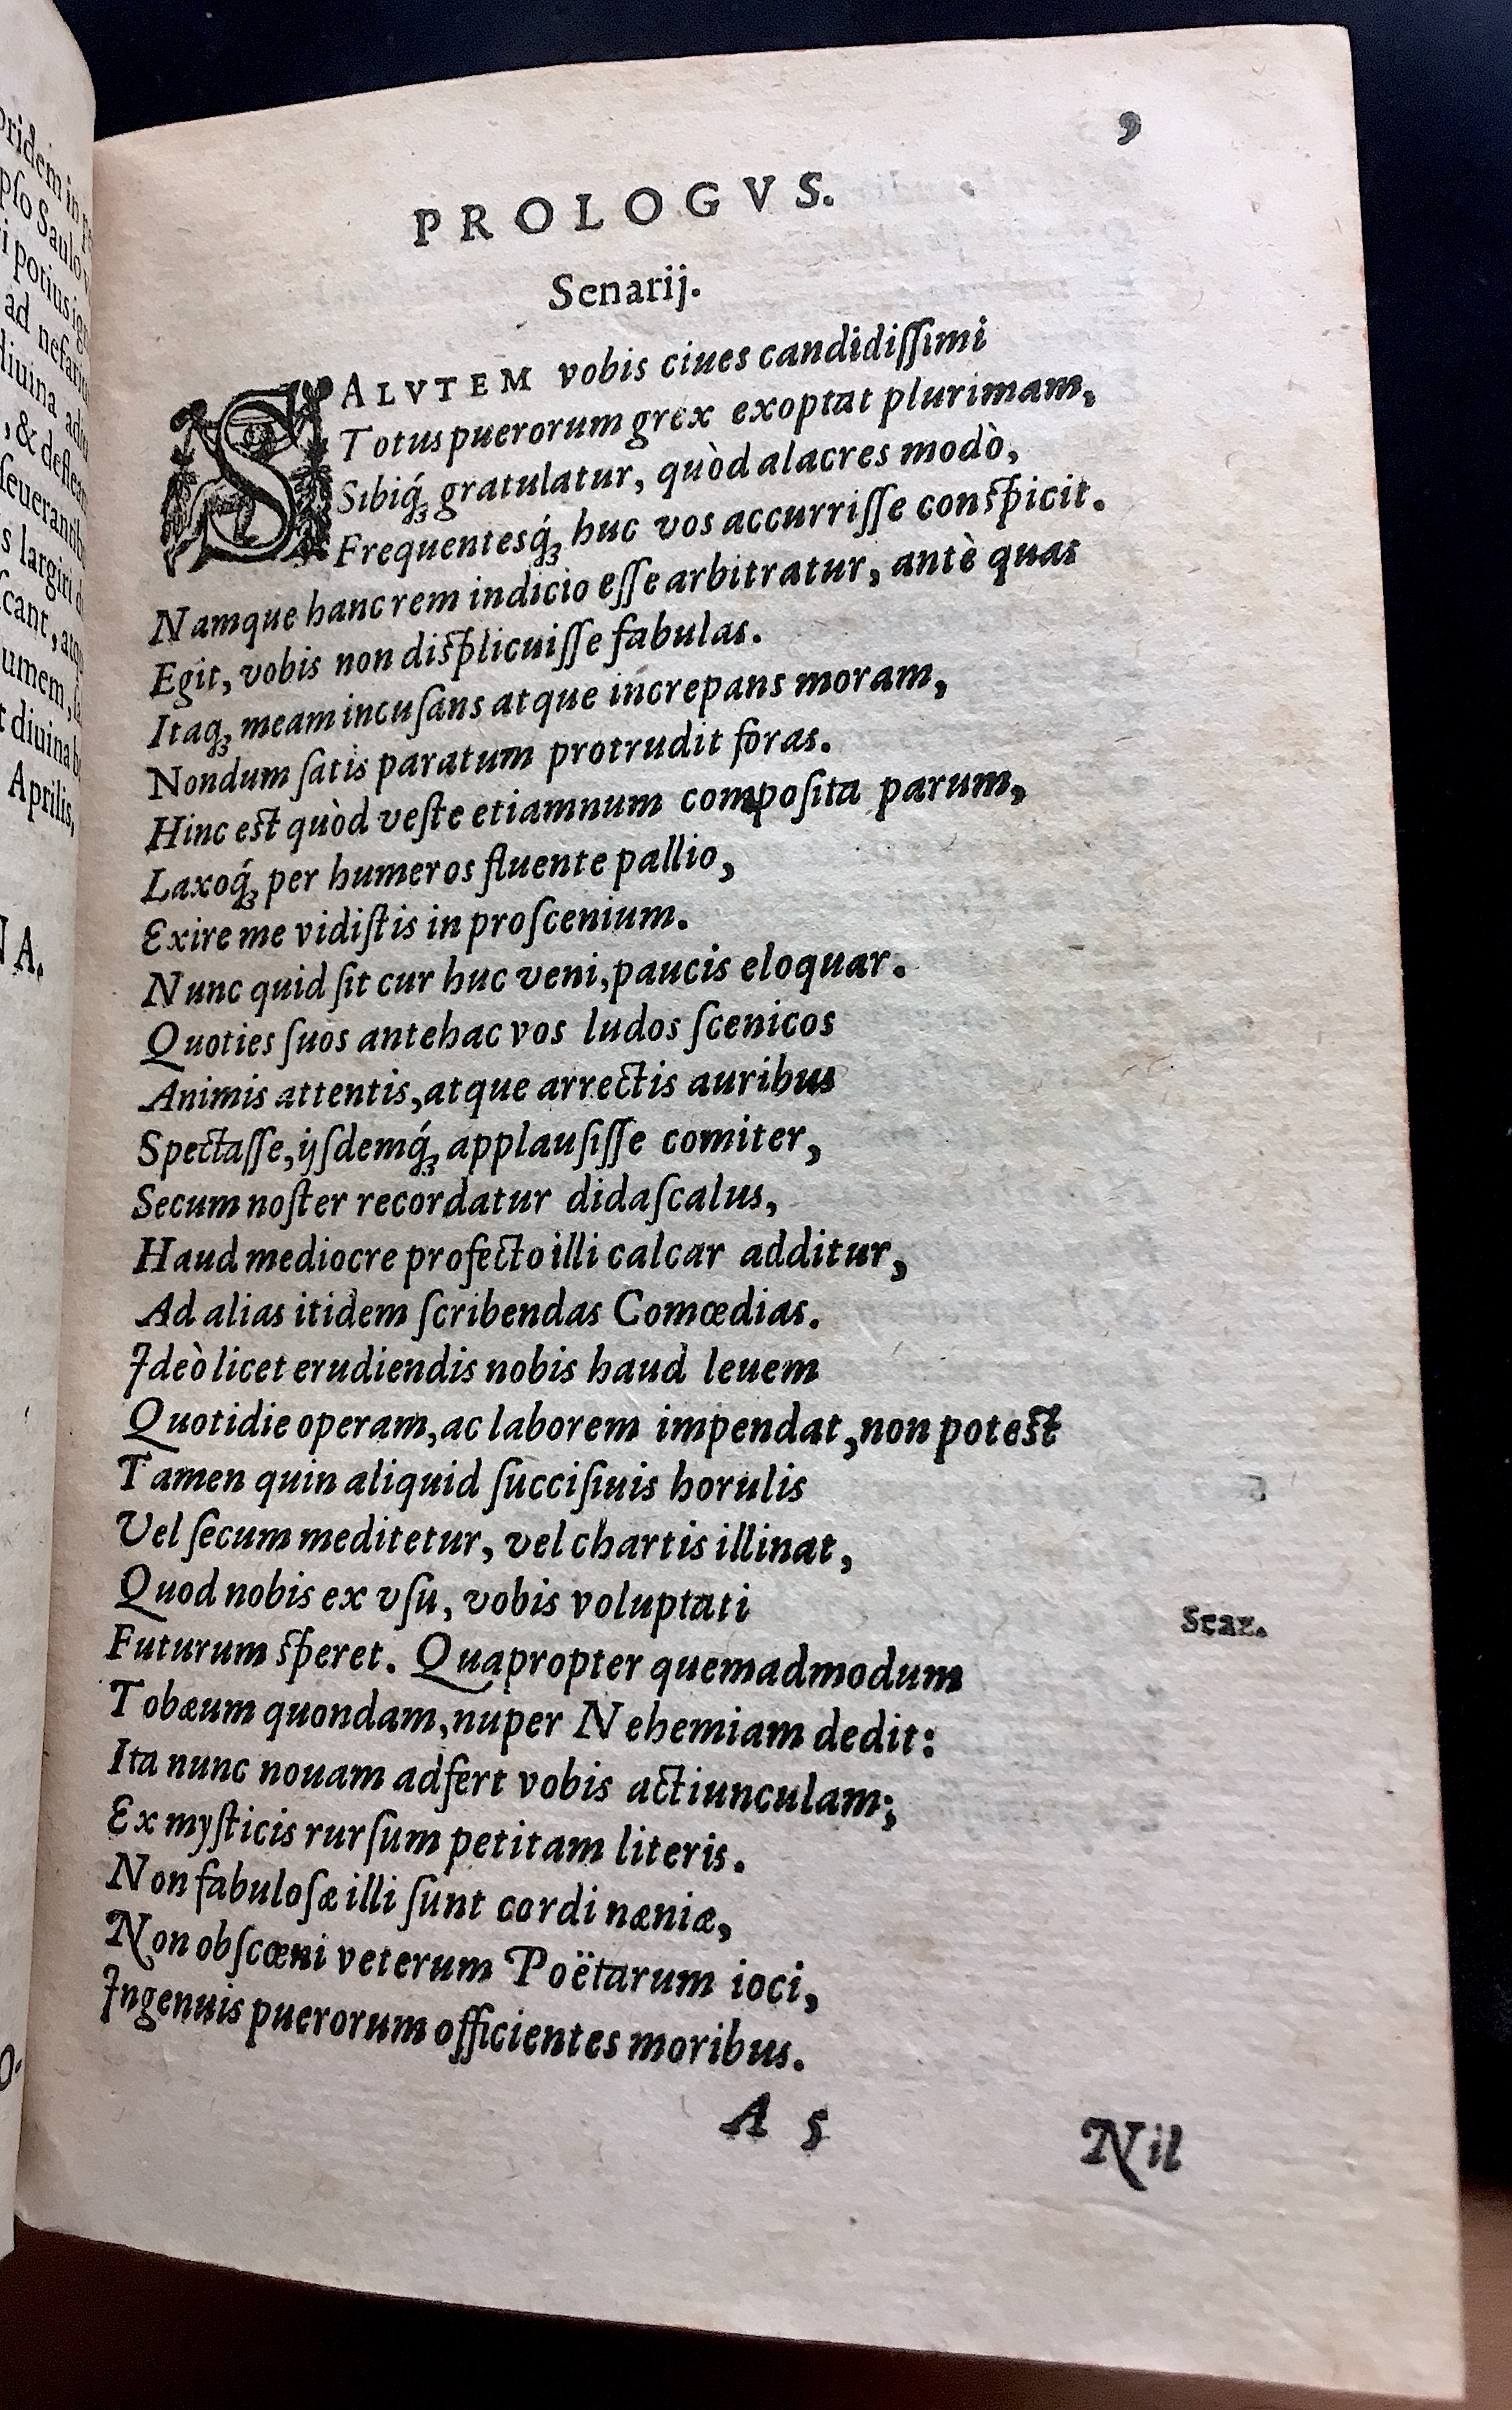 9
PROLOGVS.
Senarij.
SALVTEM vobis ciues candidißimi
Totus puerorum grex exoptat plurimam,
Sibiq́ꝫ gratulatur, quòd alacres modò,
Frequentesq́ꝫ huc vos accurriſſe conſpicit.
Namque hanc rem indicio eſſe arbitratur, antè quas
Egit, vobis non diſplicuiſſe fabulas.
Itaqꝫ meam incuſans atque increpans moram,
Nondum ſatis paratum protrudit foras.
Hinc eſt quòd veſte etiamnum compoſita parum,
Laxoq́ꝫ per humeros fluente pallio,
Exire me vidiſtis in proſcenium.
Nunc quid ſit cur huc veni, paucis eloquar.
Quoties ſuos antehac vos ludos ſcenicos
Animis attentis, atque arrectis auribus
Spectaſſe, ijſdemq́ꝫ applauſiſſe comiter,
Secum noſter recordatur didaſcalus,
Haud mediocre profecto illi calcar additur,
Ad alias itidem ſcribendas Comœdias.
Ideò licet erudiendis nobis haud leuem
Quotidie operam, ac laborem impendat, non poteſt
Tamen quin aliquid ſucciſiuis horulis
Vel ſecum meditetur, vel chartis illinat,
Quod nobis ex vſu, vobis voluptati
Scaz.
Futurum ſperet. Quapropter quemadmodum
Tobæum quondam, nuper Nehemiam dedit:
Ita nunc nouam adfert vobis actiunculam;
Ex myſticis rurſum petitam literis.
Non fabuloſæ illi ſunt cordi næniæ,
Non obſcœni veterum Poëtarum ioci,
Ingenuis puerorum officientes moribus.
A 5
Nil